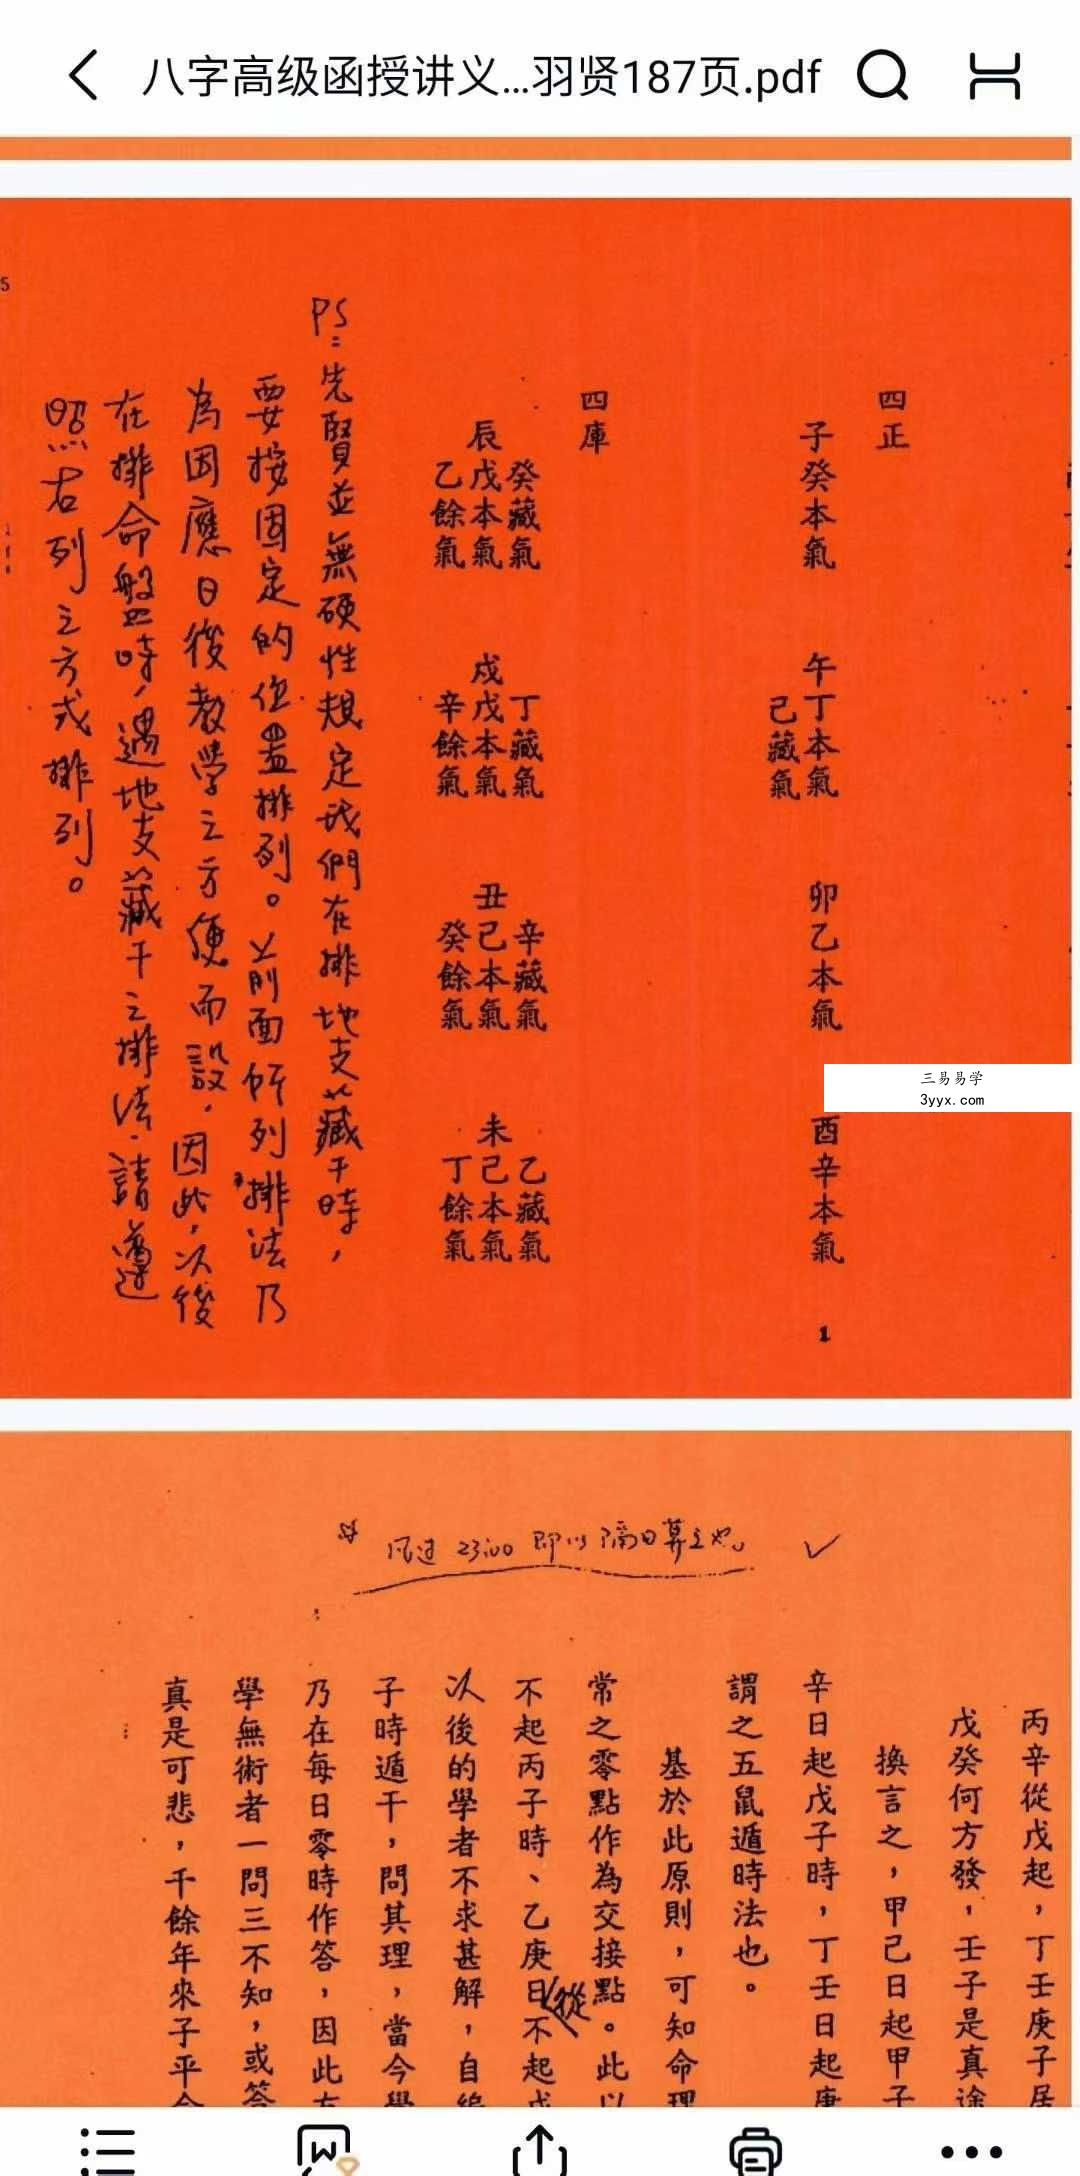 八字高级函授讲义...羽贤187页.pdf
四正
子癸本氣
午丁本氣
己藏氣
卯乙本氣
酉辛本氣
1
四庫
辰
癸藏氣
戊本氣
乙餘氣
戌
丁藏氣
戊本氣
辛餘氣
丑
辛藏氣
己本氣
癸餘氣
未
乙藏氣
己本氣
丁餘氣
PS:先賢並無硬性規定我們在排地支藏干時,
要按固定的位置排列。前面所列排法乃
為因應日後教學之方便而設.因此,以後
在排命盤時,遇地支藏干之排法.請遵
照右列之方式排列。
5
三易易学
3yyx.com
凡过 23:00 即以隔日算之也。
丙辛從戊起,丁壬庚子居
戊癸何方發,壬子是真途
換言之,甲己日起甲子
辛日起戊子時,丁壬日起庚
謂之五鼠遁時法也。
基於此原則,可知命理
常之零點作為交接點。此以
不起丙子時、乙庚日從不起戊
以後的學者不求甚解,自絕
子時遁干,問其理,當今學
乃在每日零時作答,因此右
學無術者一問三不知,或答
真是可悲,千餘年來子平命